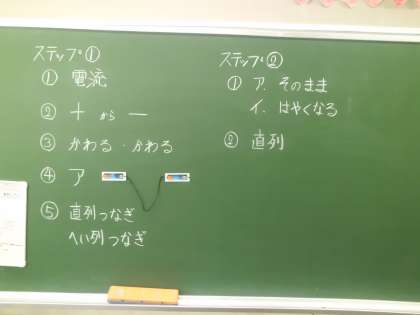 ステップ①
① 電流
② + から −
③ かわる・かわる
④ ア
⑤ 直列つなぎ
へい列つなぎ
ステップ②
① ア. そのまま
イ. はやくなる
② 直列